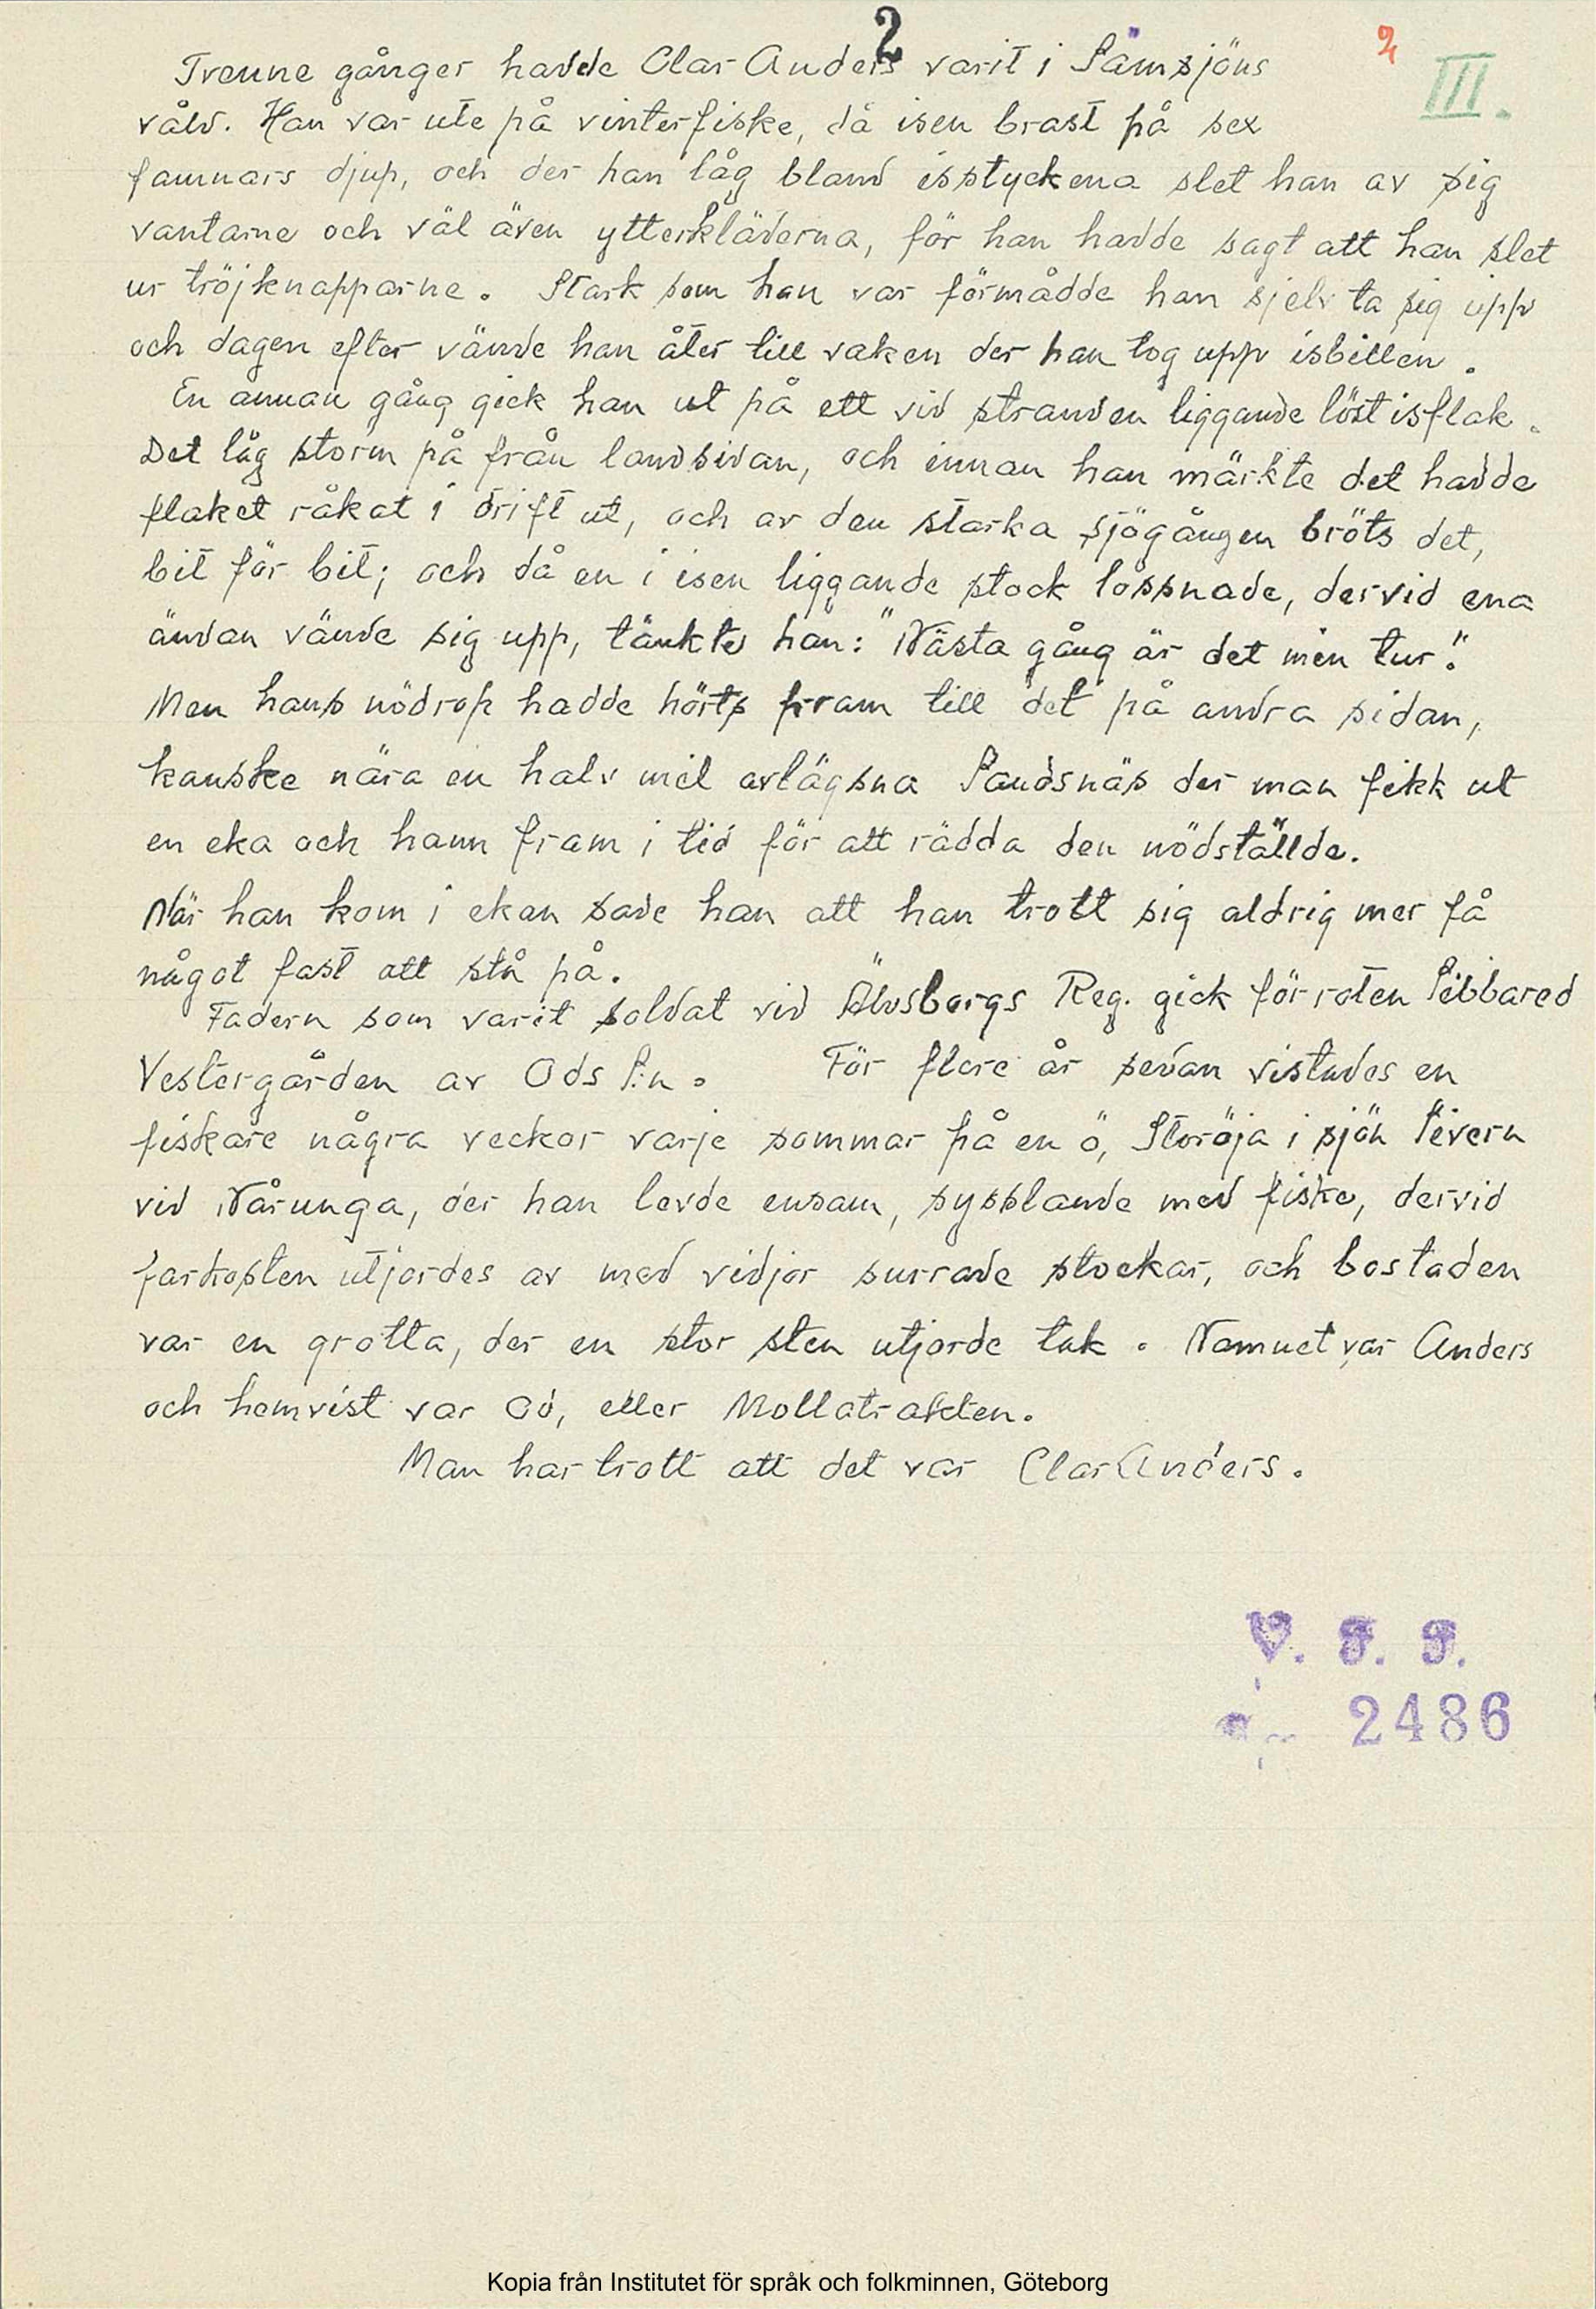 2
2
III.
Trenne gånger hadde Clar Anders varit i Sämsjöns
våld. Han var ute på vinterfiske, då isen brast på sex
famnars djup, och der han låg bland isstyckena slet han av sig
vantarne och väl även ytterkläderna, för han hadde sagt att han slet
ur tröjknapparne. Stark som han var förmådde han sjelv ta sig upp
och dagen efter vände han åter till vaken der han tog upp isbillen.
En annan gång gick han ut på ett vid stranden liggande löst isflak.
Det låg storm på från landsidan, och innan han märkte det hadde
flaket råkat i drift ut, och av den starka sjögången bröts det,
bit för bit; och då en i isen liggande stock lossnade, dervid ena
ändan vände sig upp, tänkte han: "Nästa gång är det min tur."
Men hans nödrop hadde hörts fram till det på andra sidan,
kanske nära en halv mil avlägsna Sandsnäs der man fikk ut
en eka och hann fram i tid för att rädda den nödställde.
När han kom i ekan sade han att han trott sig aldrig mer få
något fast att stå på.
Fadern som varit soldat vid Älvsborgs Reg. gick för roten Sibbared
Vestergården av Ods S:n. För flere år sedan vistades en
fiskare några veckor varje sommar på en ö, Storöja i sjön Sävern
vid Nårunga, der han levde ensam, sysslande med fiske, dervid
farkosten utjordes av med vidjor surrade stockar, och bostaden
var en grotta, der en stor sten utjorde tak. Namnet var Anders
och hemvist var Od, eller Mollatrakten.
Man har trott att det var Clar Anders.
V. F. F.
2486
Kopia från Institutet för språk och folkminnen, Göteborg